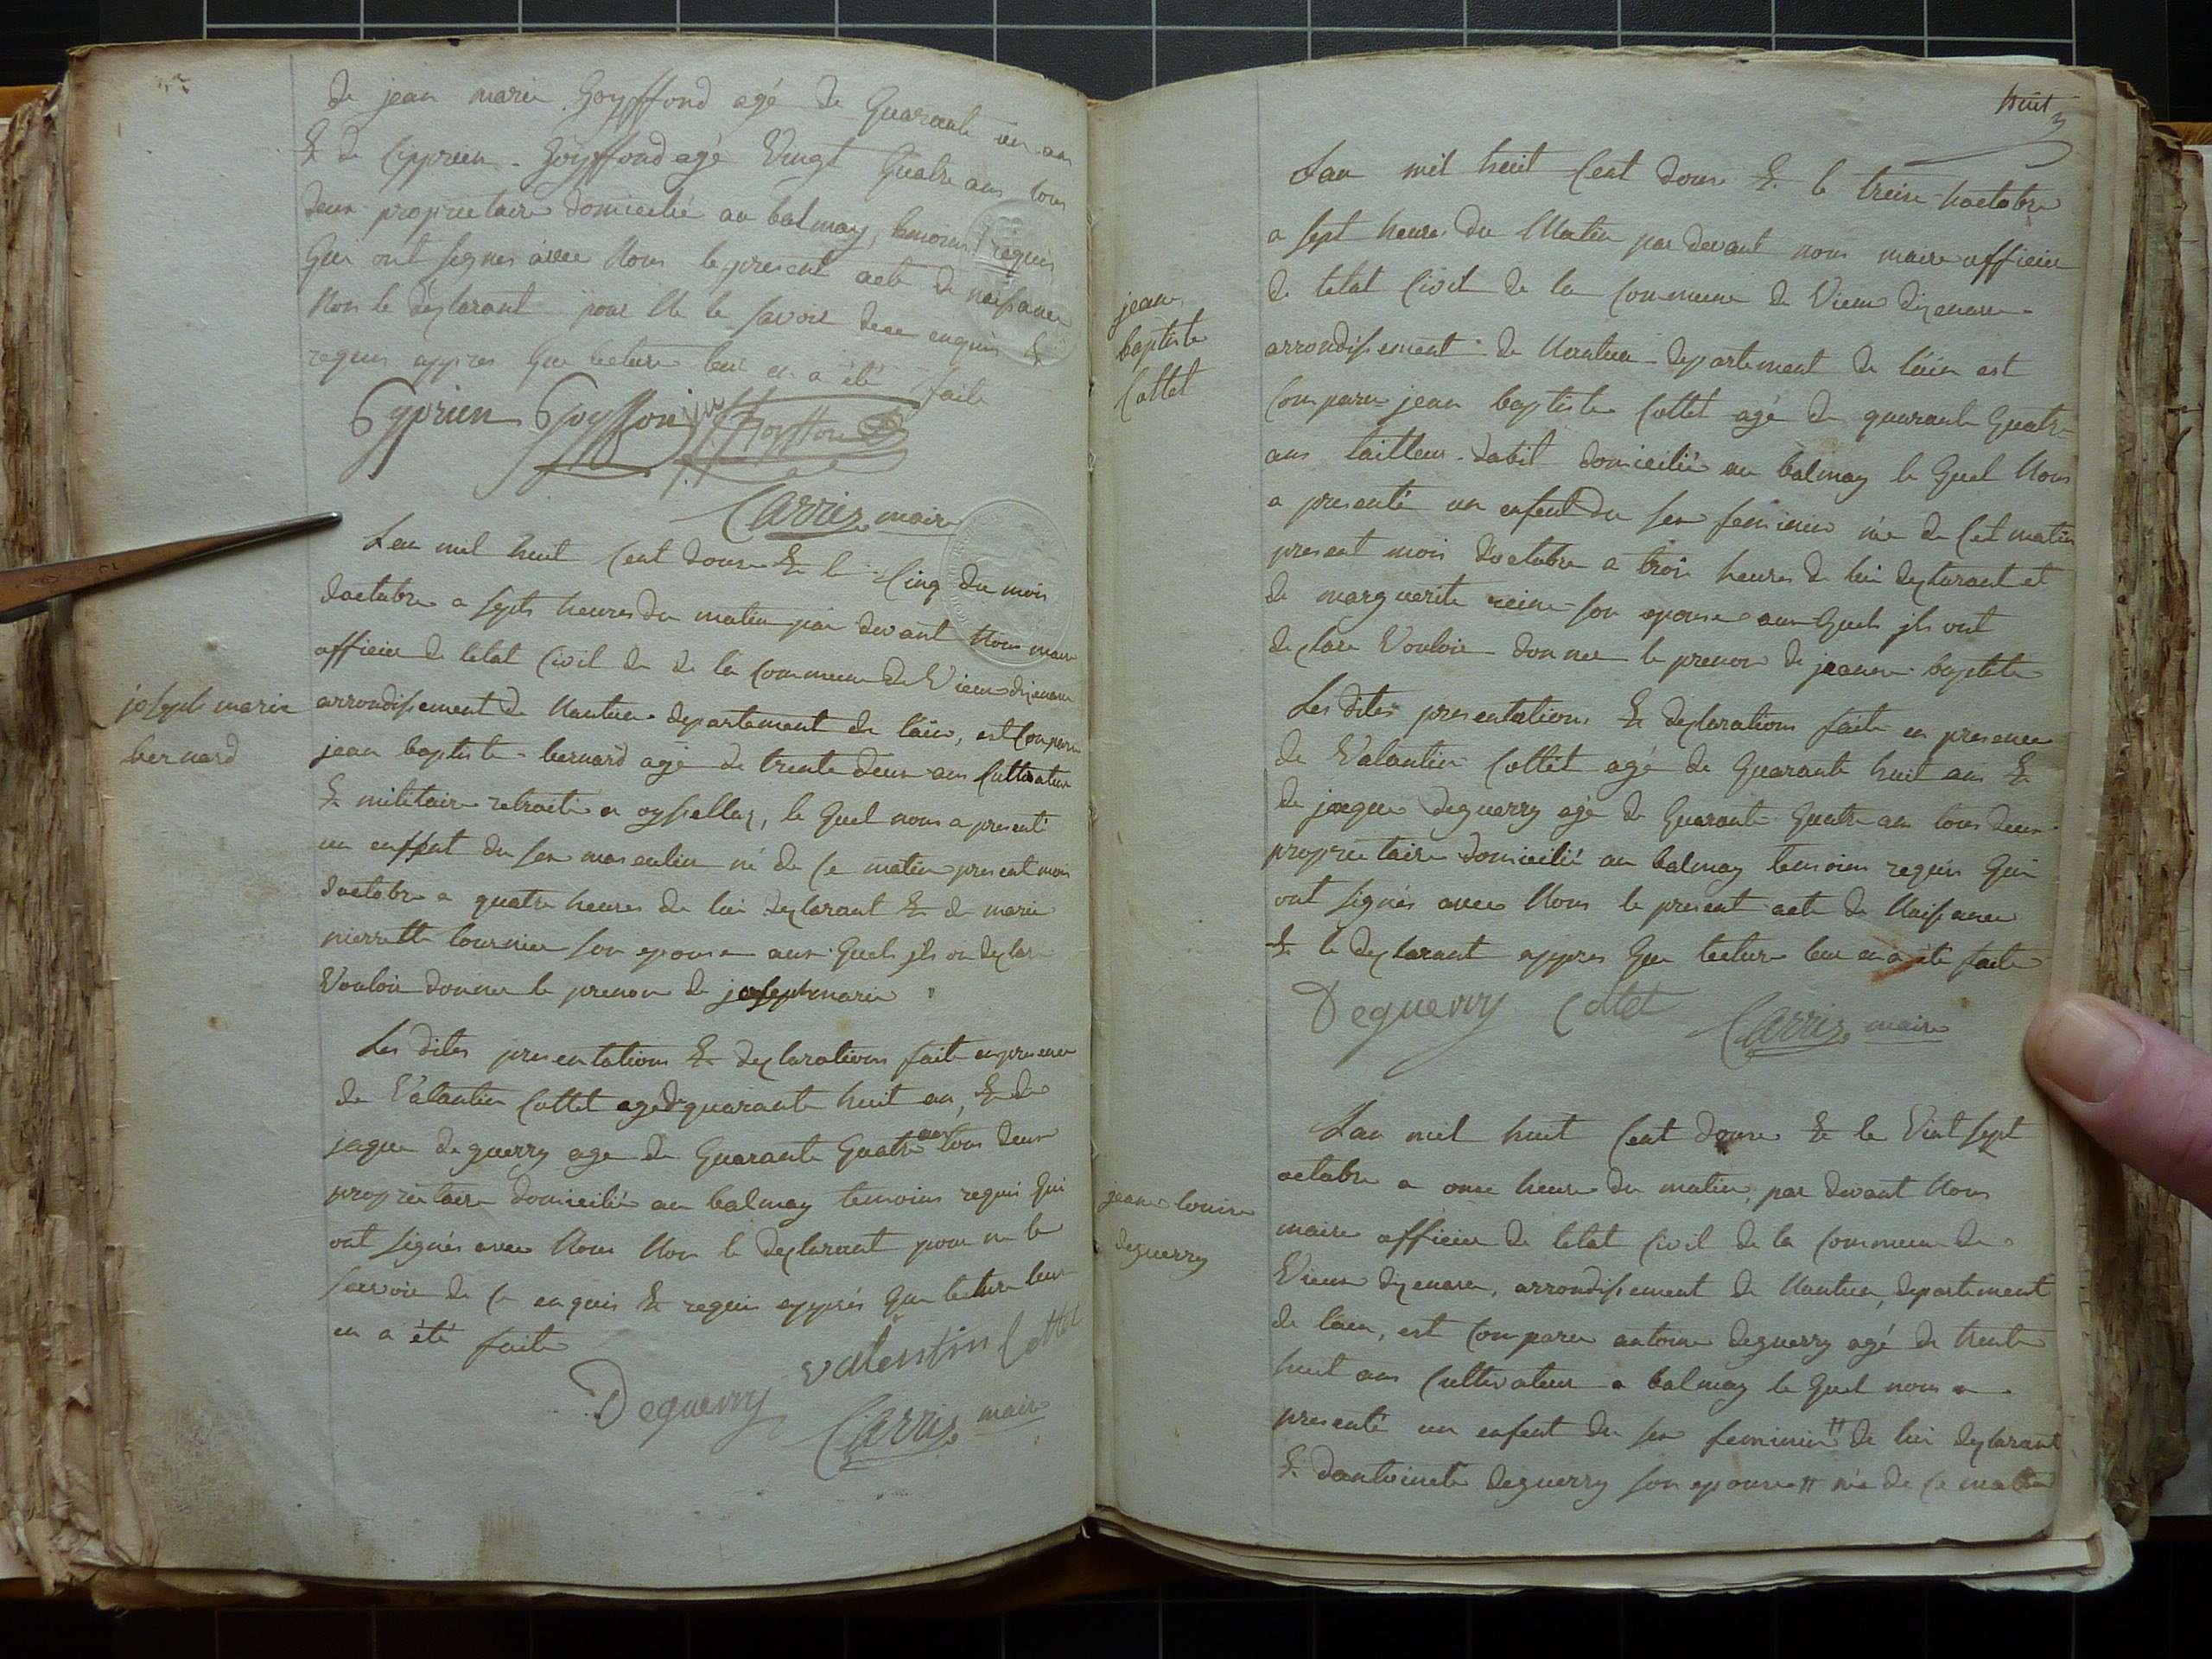 de jean marie Goyffond agé de Quarante un an
& de Cipprien Goyffond agé Vingt Quatre ans tous
deux proprietaire domicilié au balmay, temoins requis
Qui ont signes avec Nous le present acte de naissance
Non le déclarant pour Ne le savoir dece enquis &
requis appres Que lecture leur en a été faite
Cyprien Goyffon jm Goyffon
Carrier maire
Lan mil huit Cent douze & le Cinq du mois
doctobre a sept heures du matin par devant Nous maire
officier de letat Civil de de la Commune de Vieux dizenave
arrondissement de Nantua departement de lain, est Comparu
jean baptiste bernard agé de trente deux ans Cultivateur
& militaire retraité a oysellaz, le Quel nous a presenté
un enffant du sex masculin né de Ce matin present mois
doctobre a quatre heures de lui declarant & de marie
pierrette tournier son epouse aux Quels jls on declare
Vouloir donner le prenom de joseph marie
joseph marie
bernard
Les dites presentations & declarations fait en presence
de Valantin Cottet agé de quarante huit an, & de
jaque deguerry age de Quarante Quatre ans tous deux
proprietaire domicilié au balmay temoins requis Qui
ont signés avec Nous Non le declarant pour ne le
scavoir de Ce enquis & requis apprés Que lecture leur
en a été faite
Deguerry valentin Cottet
Carrier maire
huit
Lan mil huit Cent douze & le treize hoctobre
a sept heures du Matin par devant nous maire officier
de letat Civil de la Commune de Vieux dizenave
arrondissement de Nantua departement de lain est
Comparu jean baptiste Cottet agé de quarante Quatre
ans tailleur dabit domicilié au balmay le Quel Nous
a presenté un enfent du sex feminin née de Cet matin
present mois doctobre a trois heures de lui declarant et
de marguerite reine son epouse aux Quels jls ont
declare Vouloir donner le prenom de jeanne baptiste
jeane
baptiste
Cottet
Les dites presentations & declarations faite en presence
de Valantin Cottet agé de Quarante huit ans &
de jaque deguerry agé de Quarante Quatre an tous deux
proprietaire domicilié au balmay temoins requis Qui
ont signés avec Nous le present acte de Naissance
& le declarant appres Que lecture leur en a été faite
Deguerry Cottet Carrier maire
Lan mil huit Cent douze & le Vint sept
octobre a onze heure du matin, par devant Nous
maire officier de letat Civil de la Commune de
Vieux dizenave, arrondissement de Nantua, departement
de lain, est Comparu antoine deguerry agé de trente
huit ans Cultivateur a balmay le Quel nous a
presenté un enfent du sex feminin de lui declarant
& dantoinete deguerry son epouse née de Ce matin
jeane louise
deguerry